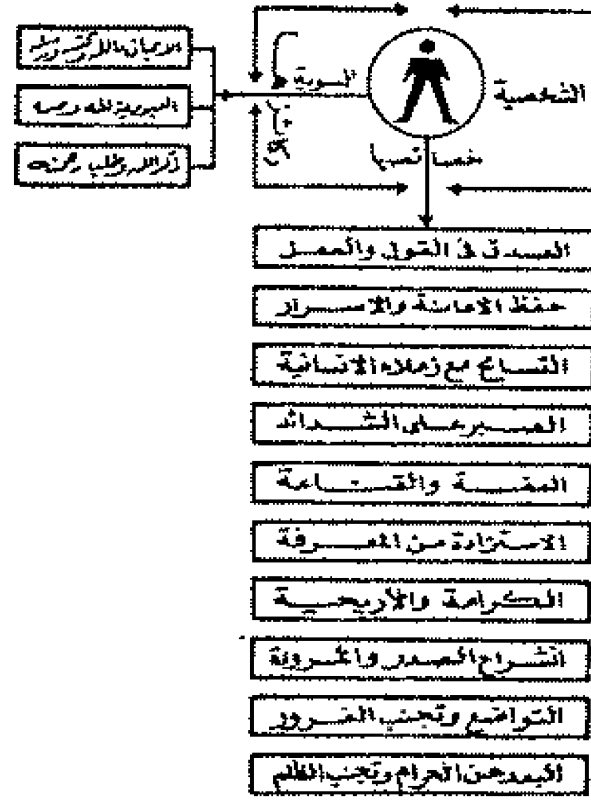 الشخصية
السوية
خصائصها
العبودية لله وحده
ذكر الله وطلب رحمته
الصدق في القول والعمل
حفظ الامانة والاسرار
التسامح مع زملاء الانسانية
الصبر على الشدائد
العفة والقناعة
الاستزادة من المعرفة
الكرامة والأريحية
انشراح الصدر والمرونة
التواضع وتجنب الغرور
البعد عن الحرام وتجنب الظلم